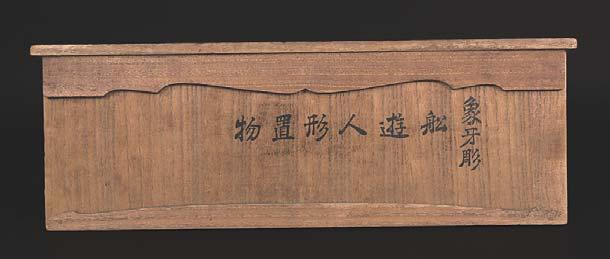 象牙彫
舩遊人形置物